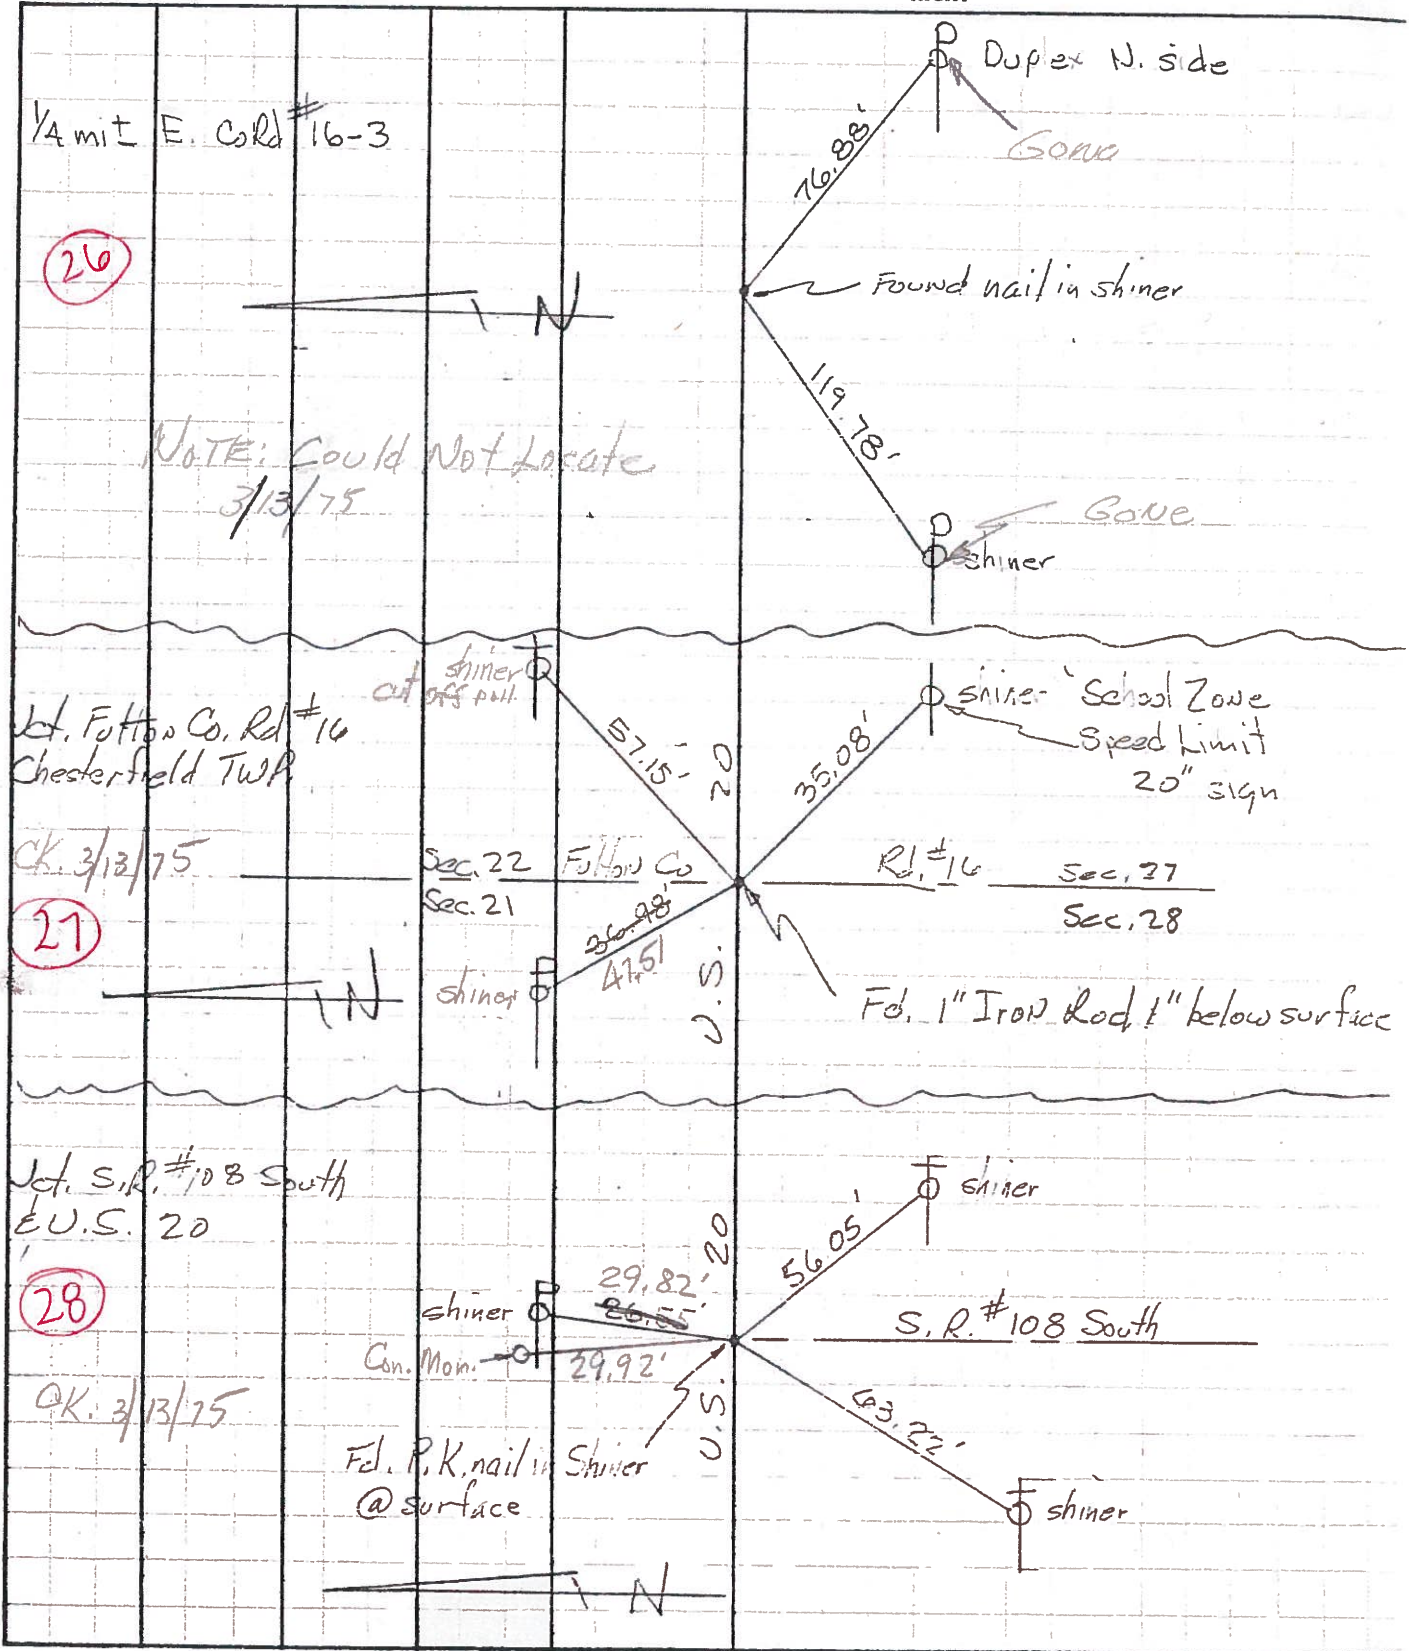 Duplex N. side
Gone
1/4 mi± E. Co Rd #16-3
76.88'
26
N
Found nail in shiner
119.78'
NOTE: Could Not Locate
3/13/75
Gone
shiner
shiner
cut off
shiner "School Zone
Speed Limit
20" sign
Jct. Fulton Co. Rd #16
Chesterfield TWP.
57.15'
20
35.08'
CK. 3/13/75
Sec. 22 Fulton Co Rd. #16 Sec. 27
Sec. 21 Sec. 28
27
36.98'
47.51
shiner
N
U.S.
Fd. 1" Iron Rod 1" below surface
Jct. S.R. #108 South
& U.S. 20
shiner
20
56.05'
28
29.82'
shiner
26.55'
S.R. #108 South
Con. Mon.
29.92'
OK. 3/13/75
U.S.
63.22'
Fd. P.K. nail in Shiner
@ surface
shiner
N